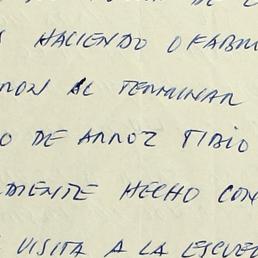 HACIENDO O FABRI
RON AL TERMINAR
O DE ARROZ TIBIO
DMENTE HECHO CON
VISITA A LA ESCUEL